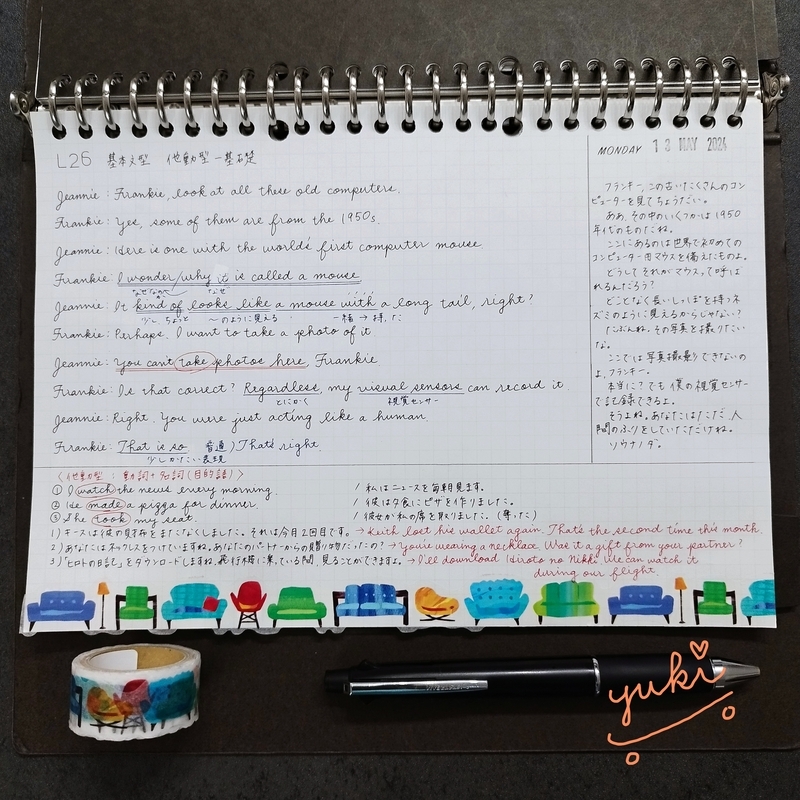 L26 基本文型 他動型-基礎
MONDAY 13 MAY 2024
Jeannie: Frankie, look at all these old computers.
Frankie: Yes, some of them are from the 1950s.
Jeannie: Here is one with the world's first computer mouse.
Frankie: I wonder/why it is called a mouse.
なぜなのか なぜ
Jeannie: It kind of looks like a mouse with a long tail, right?
少し、ちょっと 〜のように見える 一緒→持った
Frankie: Perhaps, I want to take a photo of it
Jeannie: You can't take photos here, Frankie.
Frankie: Is that correct? Regardless, my visual sensors can record it.
とにかく 視覚センサー
Jeannie: Right. You were just acting like a human.
Frankie: That is so 普通) That's right.
少しかたい表現
フランキー、この古いたくさんのコン
ピューターを見てちょうだい。
ああ、その中のいくつかは1950
年代のものだね。
ここにあるのは世界で初めての
コンピューター用マウスを備えたものよ。
どうしてそれがマウスって呼ば
れるんだろう?
どことなく長いしっぽを持つネ
ズミのように見えるからじゃない?
たぶんね。その写真を撮りたい
な。
ここでは写真撮影りできないの
よ、フランキー。
本当に?でも僕の視覚センサー
で記録できるよ。
そうよね。あなたはただ人
間のふりをしていただけね。
ソウナノダ。
〈他動型:動詞+名詞(目的語)〉
① I watch the news every morning. / 私はニュースを毎朝見ます。
② He made a pizza for dinner. / 彼は夕食にピザを作りました。
③ She took my seat. / 彼女が私の席を取りました。(奪った)
1) キースは彼の財布をまたなくしました。それは今月2回目です。→ Keith lost his wallet again. That's the second time this month.
2) あなたはネックレスをつけていますね。あなたのパートナーからの贈り物だったの? → You're wearing a necklace. Was it a gift from your partner?
3) 「ヒロトの日記」をダウンロードしますね。飛行機に乗っている間、見ることができますよ。→ I'll download Hiroto no Nikki. We can watch it
during our flight.
yuki